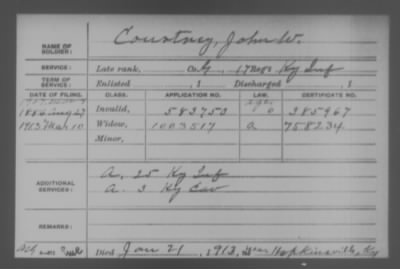 NAME OF SOLDIER: Courtney, John W.
SERVICE: Late rank, Co. G, 17 Reg't Ky Inf
TERM OF SERVICE: Enlisted , 1 Discharged , 1
DATE OF FILING. CLASS. APPLICATION NO. LAW. CERTIFICATE NO.
1886 Aug 27 Invalid, 583750 385967
1913 Mar 10 Widow, 1003517 a. 758234
Minor,
ADDITIONAL SERVICES: A. 25 Ky Inf
A. 3 Ky Cav
REMARKS:
Died Jan 21, 1913, Hopkinsville, Ky